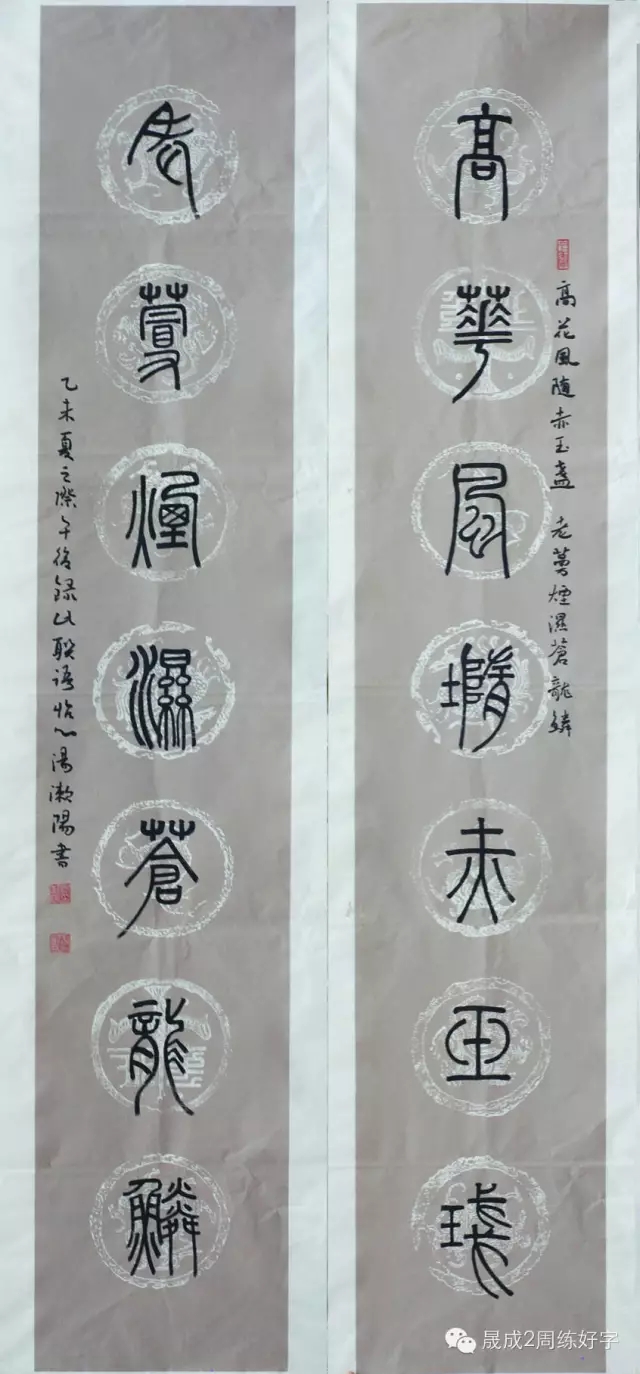 高華風墮赤玉琖
高花風隨赤玉盞 老蔓煙濕蒼龍鱗
老蔓煙濕蒼龍鱗
乙未夏之際午後錄此聯語怡心湯漱陽書
晟成2周练好字